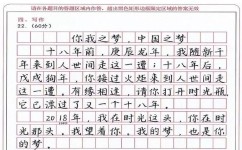 请在各题目的答题区域内作答，超出黑色矩形边框限定区域的答案无效
四、写作
22.（60分）
你我之梦，中国之梦
十八年前，庚辰龙年，我随新千
年来到人世间走这一遭；十八年后，
戊戌狗年，你接过火炬，来到人世间
走这一遭。十八年可以有
它已漂过了又一个十八年。
2018年，我在时光这头，你在时
光那头，我望着你，我的梦，也是你
的梦。